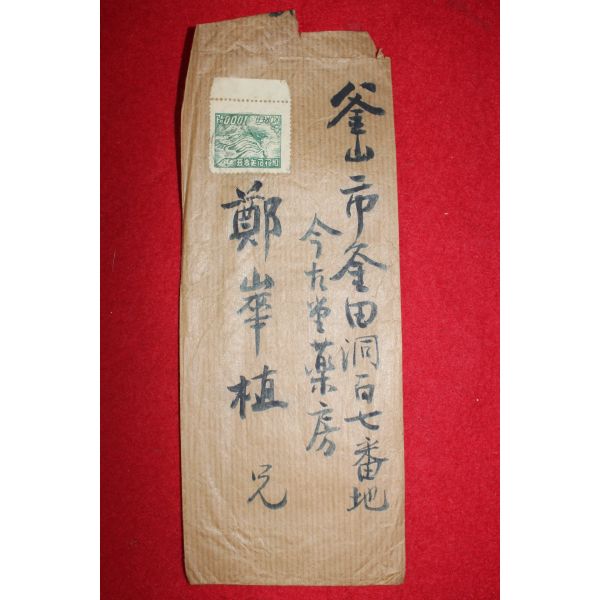 釜山市釜田洞百七番地
今古堂薬房
鄭崋植 兄
1000